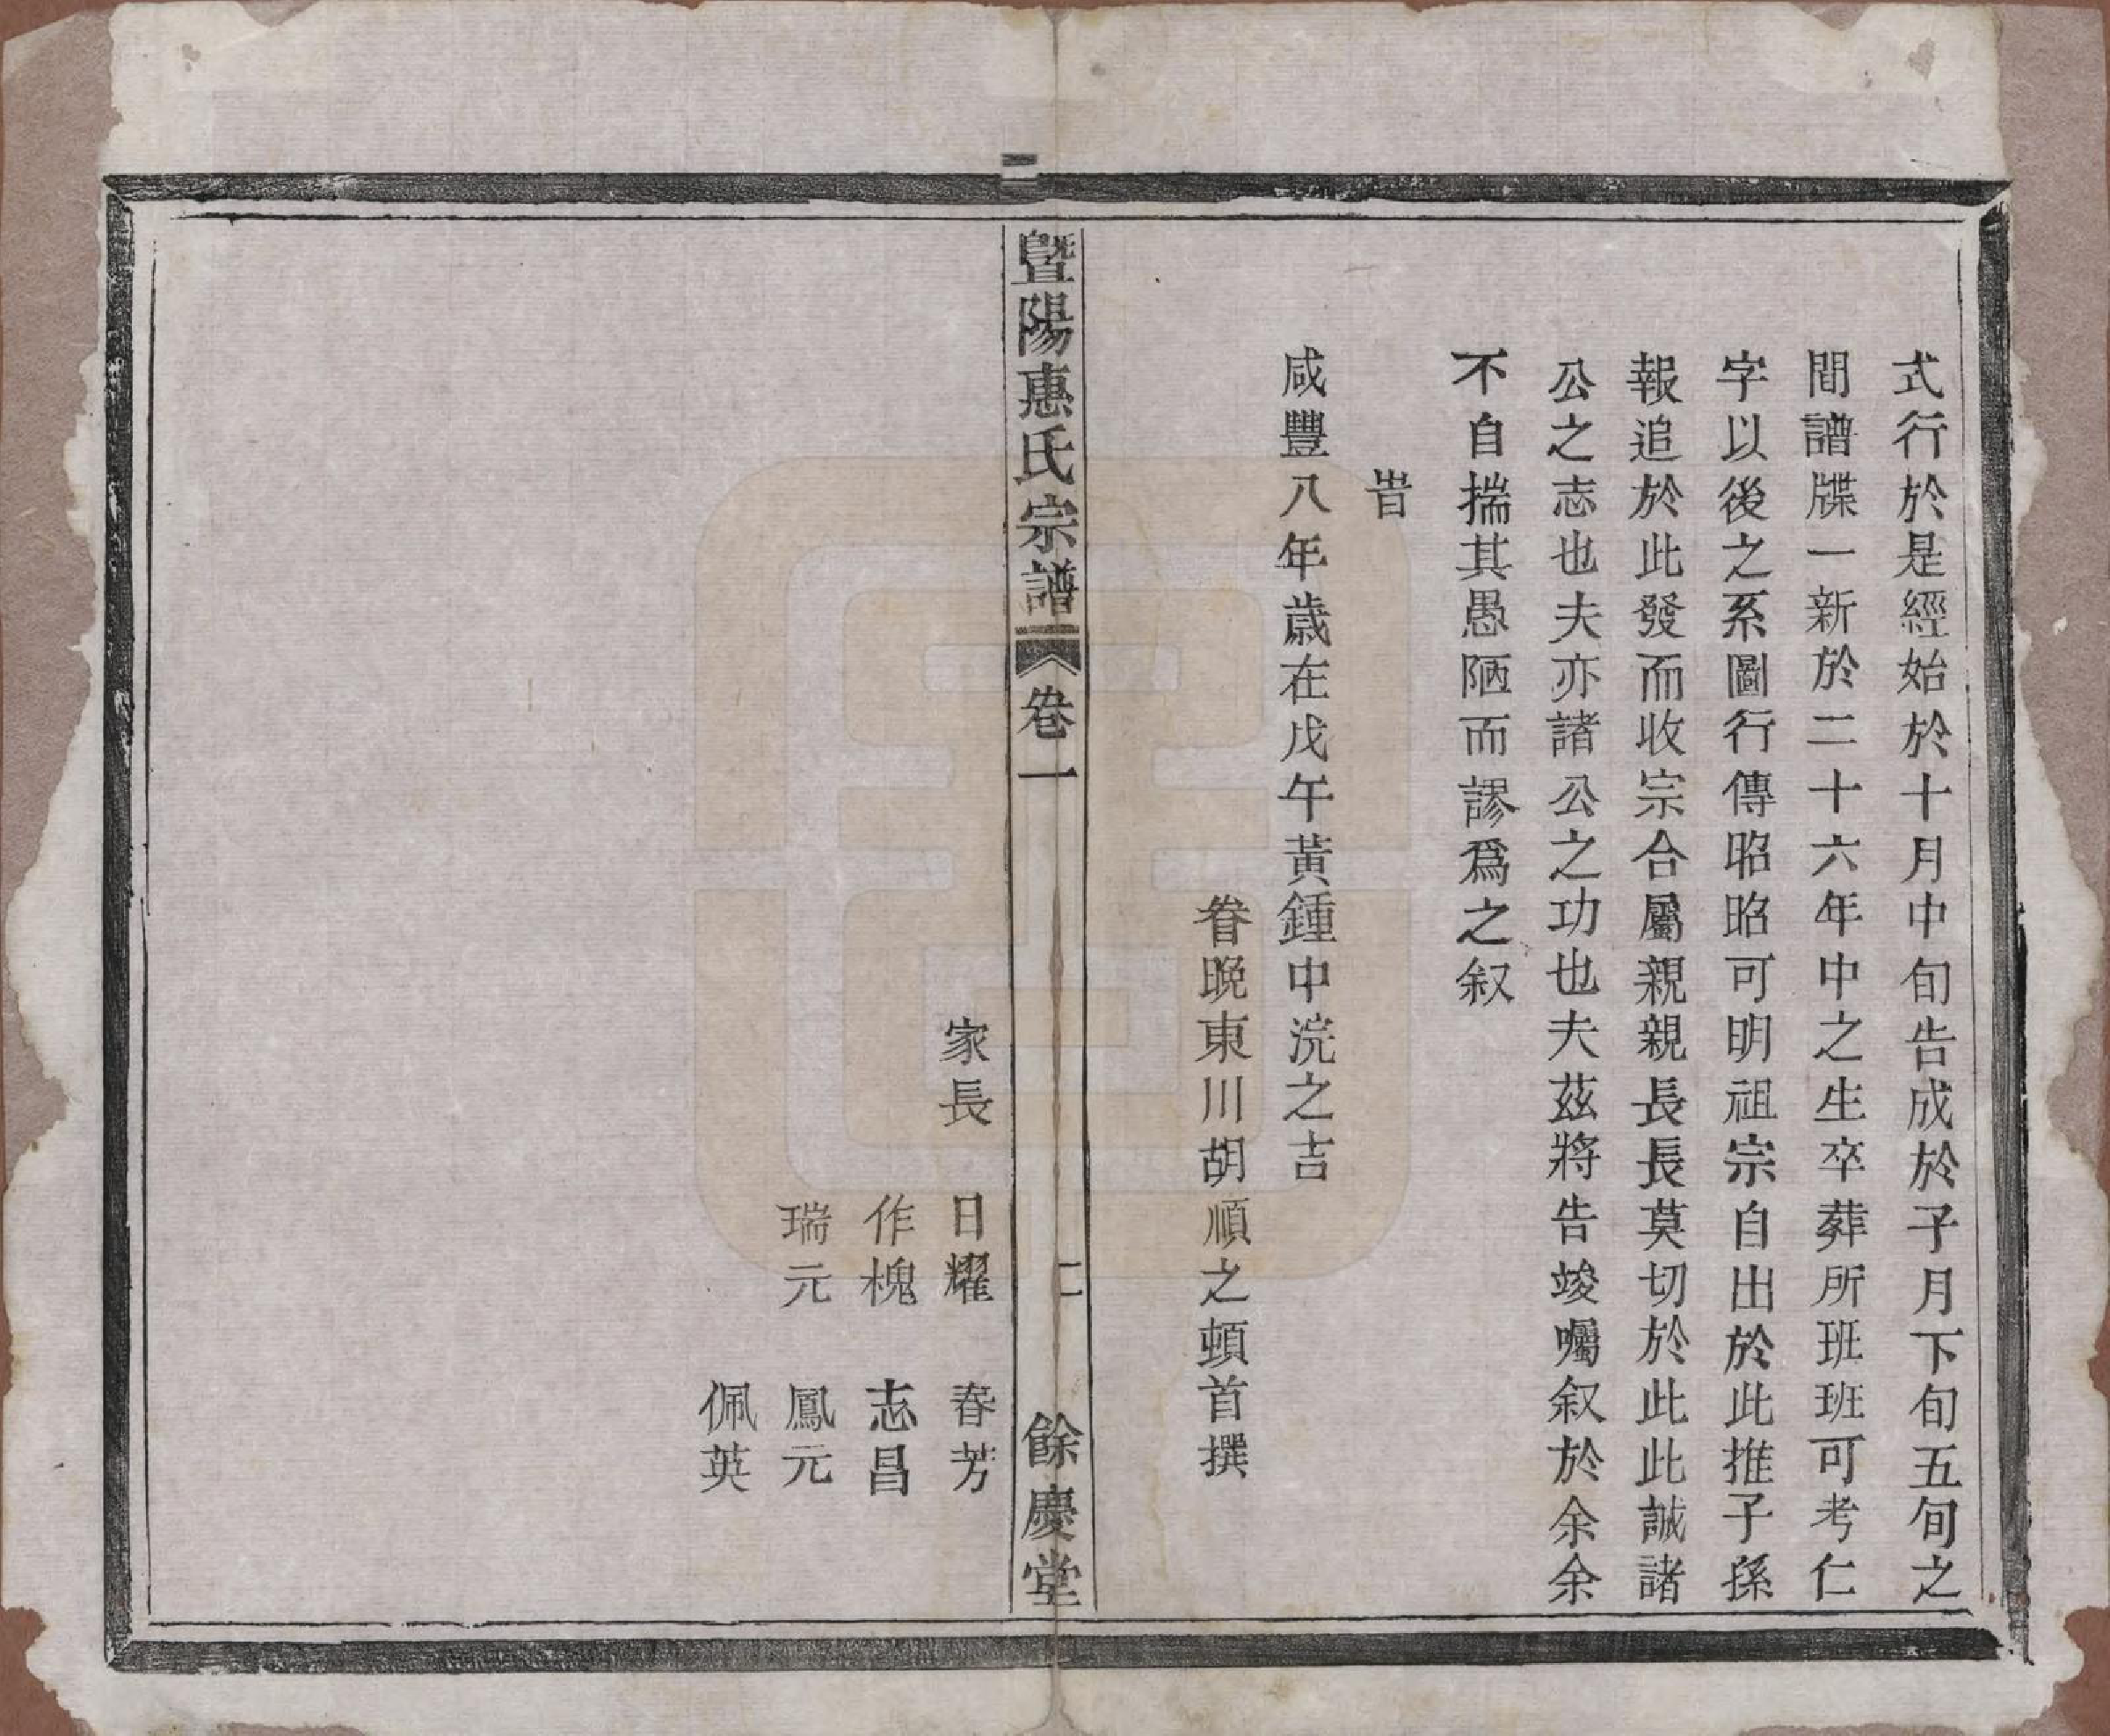 式行於是經始於十月中旬告成於子月下旬五旬之
間譜牒一新於二十六年中之生卒葬所班班可考仁
字以後之系圖行傳昭昭可明祖宗自出於此推子孫
報追於此發而收宗合屬親親長長莫切於此此誠諸
公之志也夫亦諸公之功也夫茲將告竣囑叙於余余
不自揣其愚陋而謬爲之叙
旹
咸豐八年歲在戊午黃鍾中浣之吉
眷晚東川胡順之頓首撰
暨陽惠氏宗譜 卷一 二 餘慶堂
家長 日耀 春芳
作槐 志昌
瑞元 鳳元
佩英